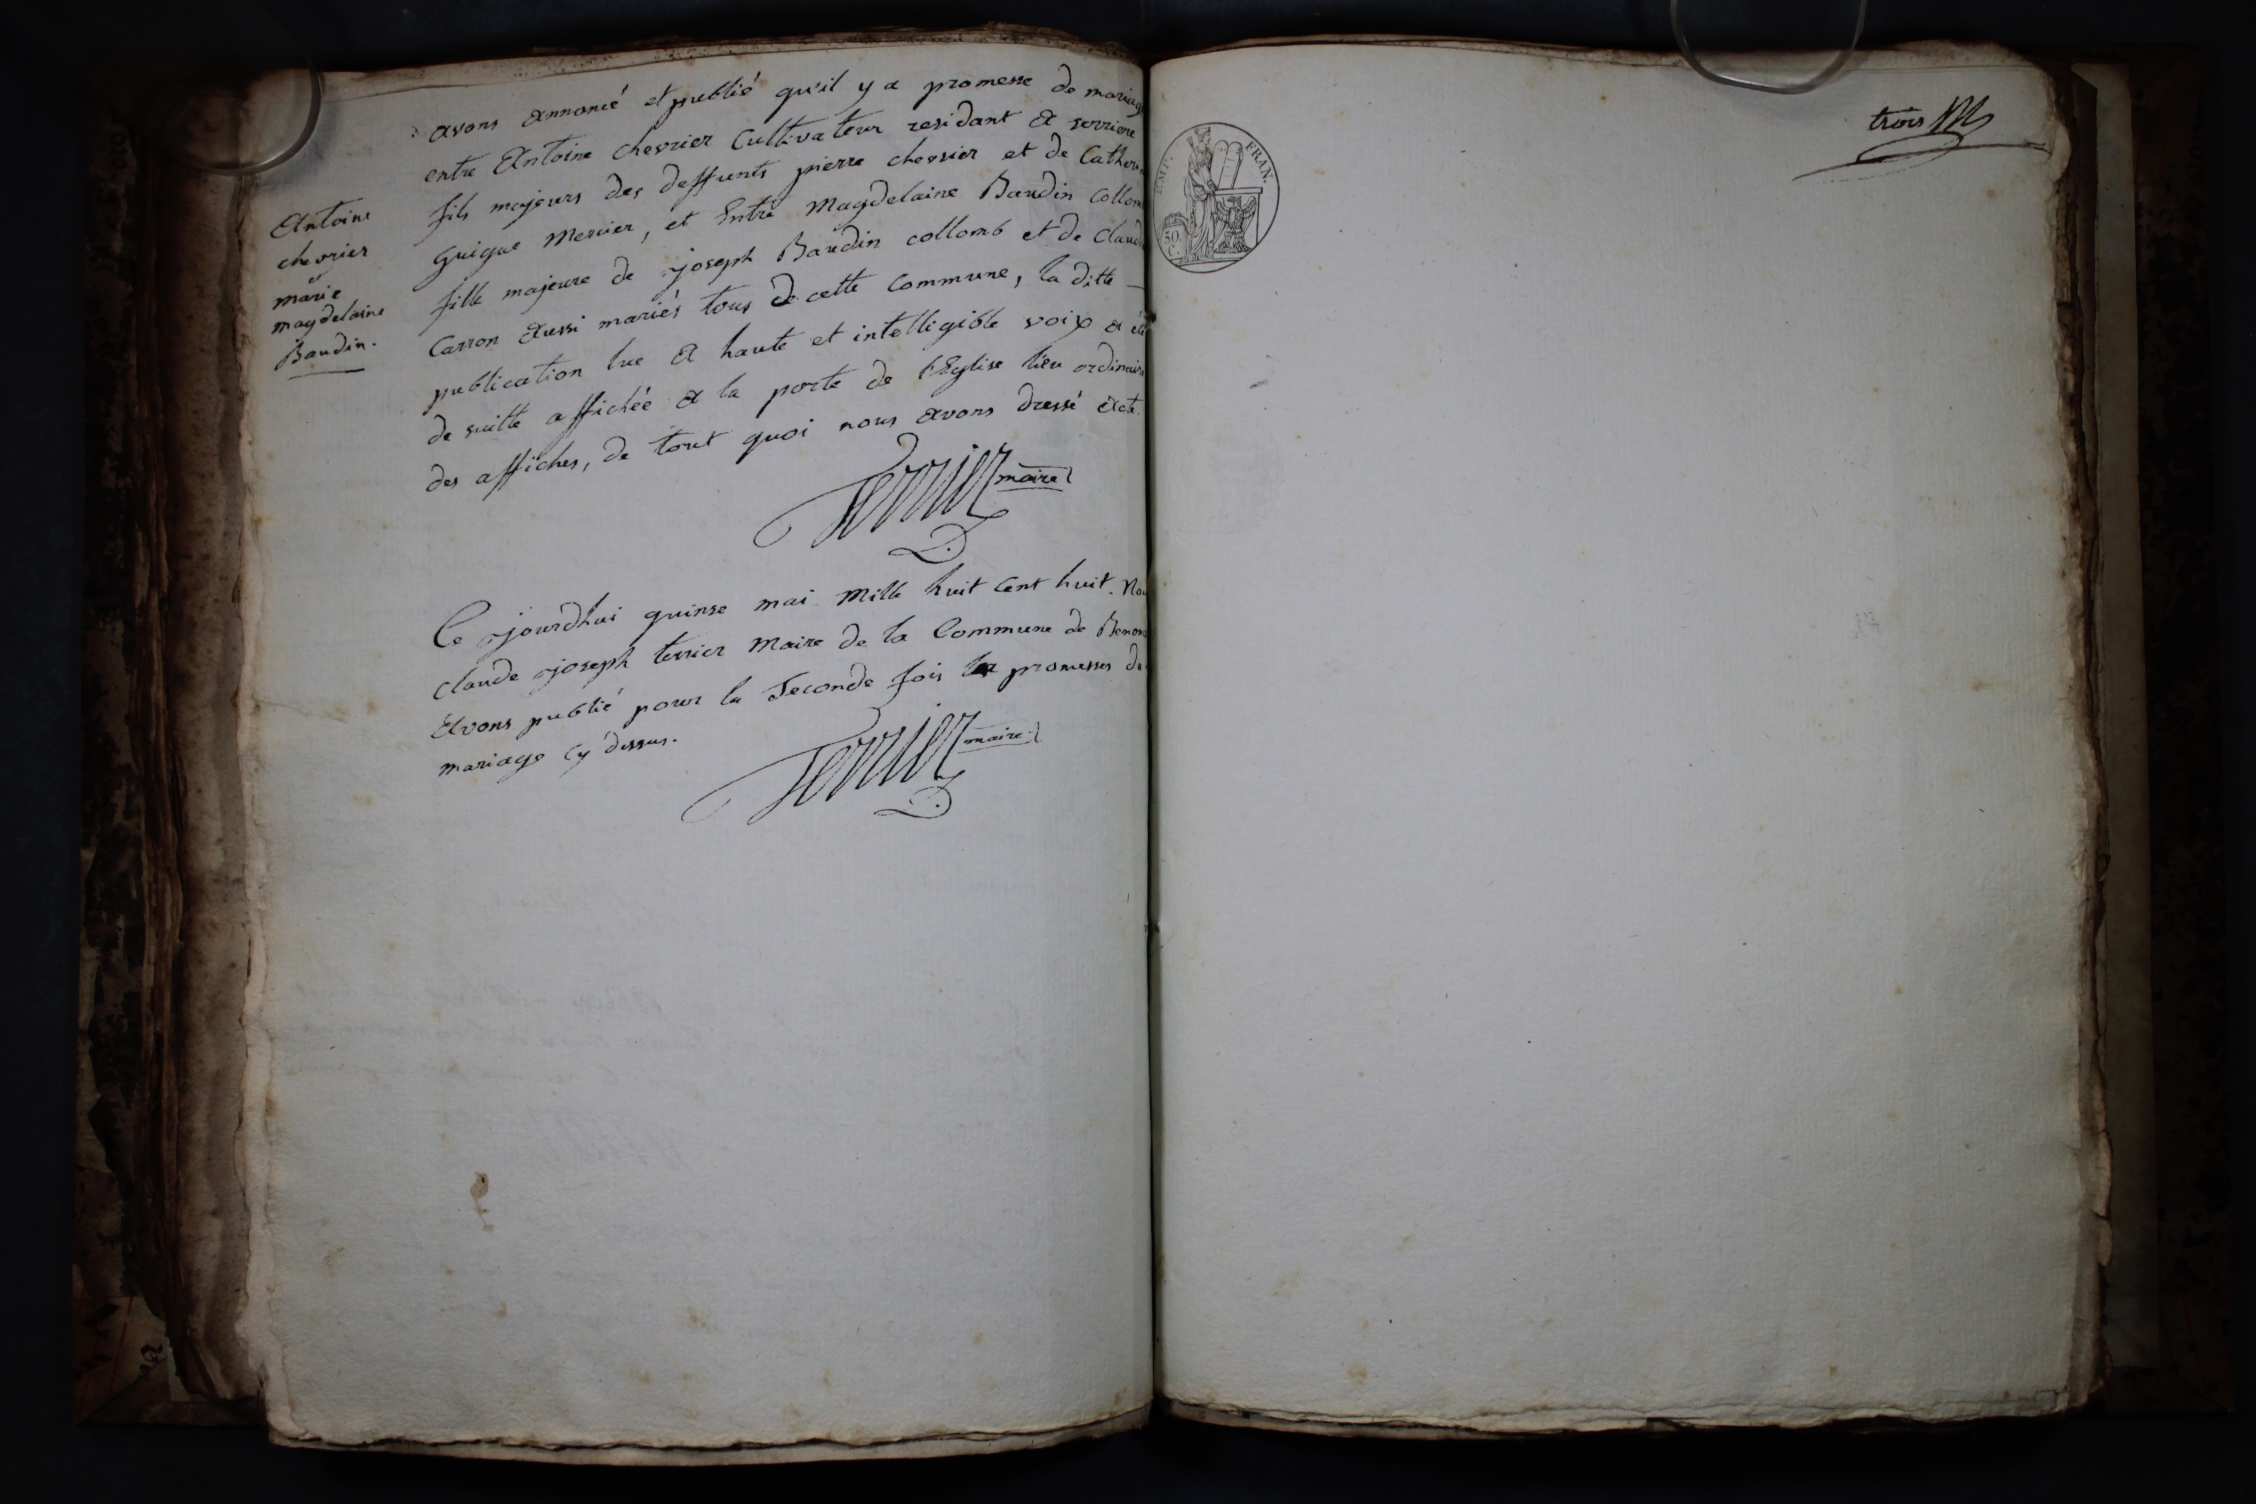 avons annoncé et publié qu'il y a promesse de mariag
entre Antoine chevrier Cultivateur residant a serriere
fils majeurs des deffunts pierre chevrier et de Cather
guigue Mercier, et Entre Magdelaine Baudin Collom
fille majeure de joseph Baudin collomb et de claud
Carron aussi mariés tous de cette Commune, la ditte
publication lue a haute et intelligible voix a été
de suitte affichée a la porte de l'Eglise lieu ordinaire
des affiches, de tout quoi nous avons dressé acte.
Terrier maire
Antoine
chevrier
et
marie
magdelaine
Baudin.
Ce jourdhui quinse mai mille huit Cent huit. Nou
claude joseph terrier Maire de la Commune de Benon
Avons publié pour la Seconde fois la promesses de
mariage cy dessus.
Terrier maire
trois
EMP. FRAN.
50.
C.